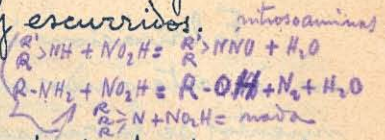 y escurridos. nitrosoaminas
R'
R >NH + NO₂H = R'
R >NNO + H₂O
R-NH₂ + NO₂H = R-OH + N₂ + H₂O
R
R
R ≥N + NO₂H = nada